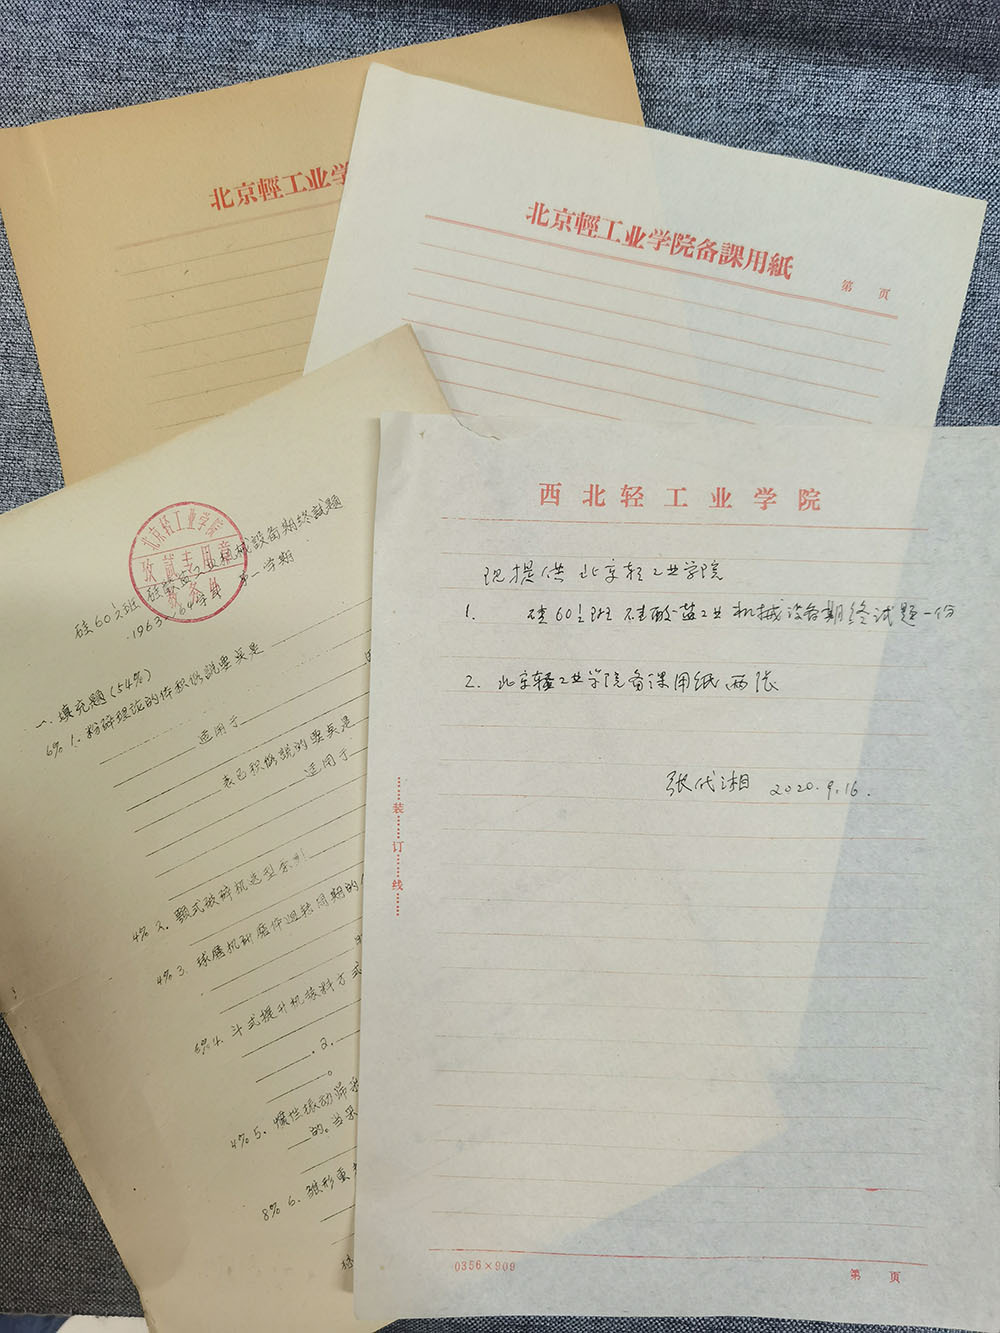 北京輕工业学
北京輕工业学院备課用紙
第 页
北京轻工业学院
攷試专用章
教务处
硅60½班 硅酸盐工业机械設备期终試題
1963-64学年第一学期
一、填充題(54%)
6% 1. 粉碎理论的体积假說要点是
适用于
表面积假說的要点是
适用于
4% 2. 顎式破碎机选型原则
4% 3. 球磨机研磨体迴转周期的
6% 4. 斗式提升机装料方式
. 2.
。
4% 5. 慣性振动筛
的。当
8% 6. 锥形
西北轻工业学院
现提供 北京轻工业学院
1. 硅60½班 硅酸盐工业机械设备期终试题一份
2. 北京轻工业学院备课用纸两张
张代湘 2020.9.16.
装订线
0356×909
第 页